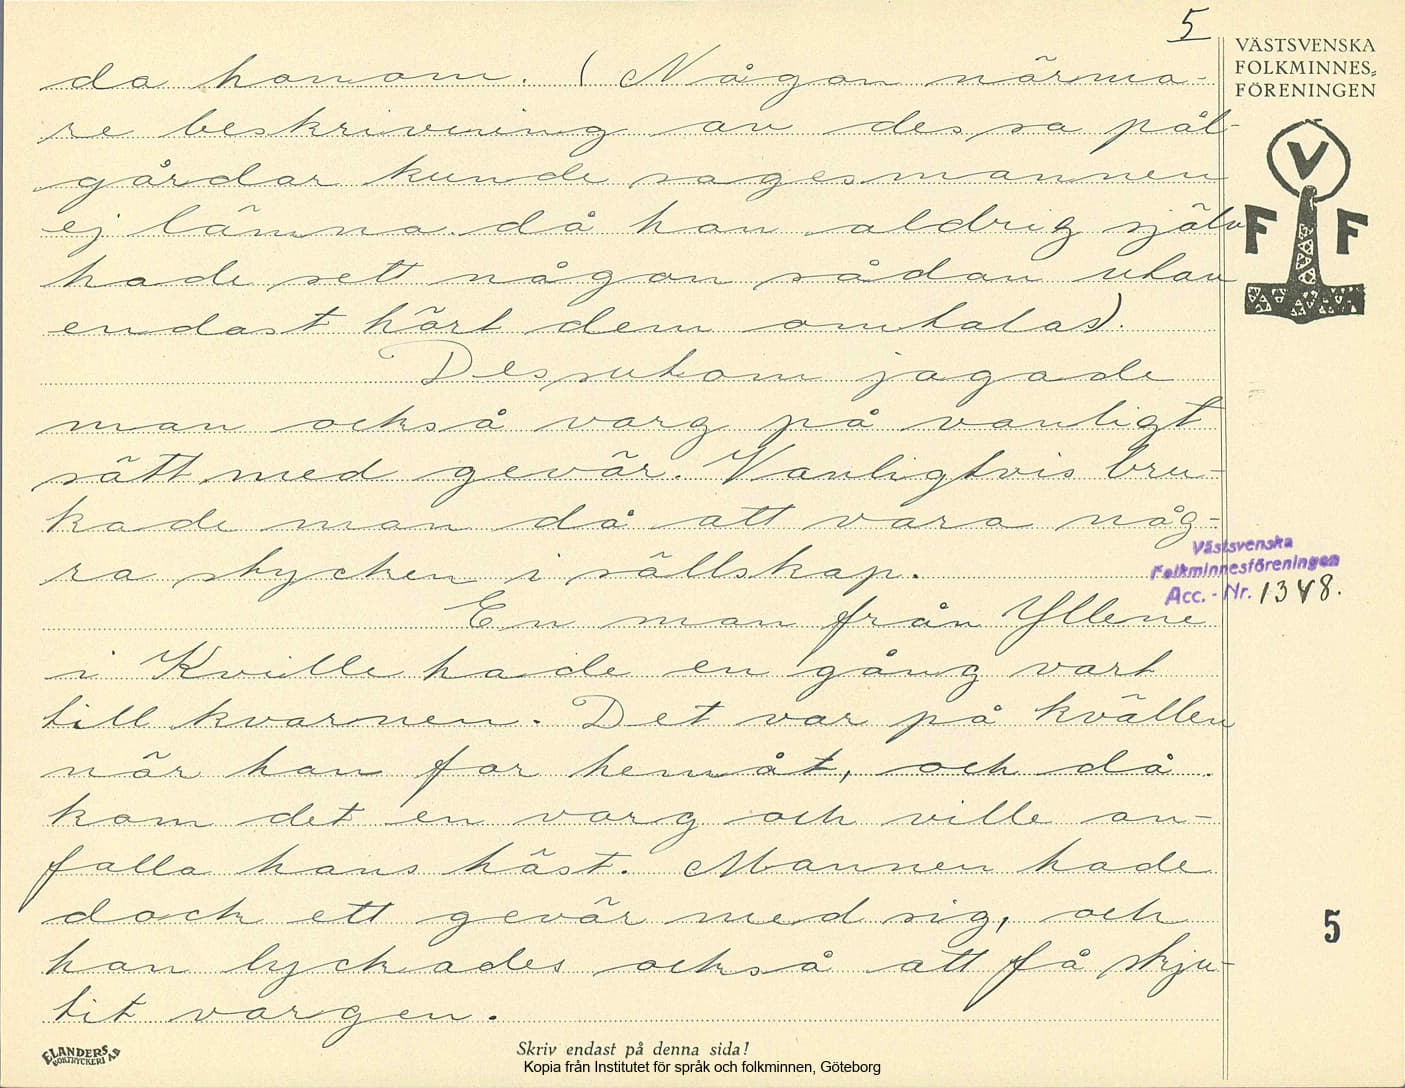 5
VÄSTSVENSKA
FOLKMINNES=
FÖRENINGEN
V
F F
da honom. (Någon närma-
re beskrivning av dessa pål-
gårdar kunde sagesmannen
ej lämna då han aldrig själv
hade sett någon sådan utan
endast hört dem omtalas).
Dessutom jagade
man också varg på vanligt
sätt med gevär. Vanligtvis bru-
kade man då att vara någ-
ra stycken i sällskap.
Västsvenska
Folkminnesföreningen
Acc. - Nr. 1348.
En man från Yllene
i Kville hade en gång vart
till kvarnen. Det var på kvällen
när han for hemåt, och då
kom det en varg och ville an-
falla hans häst. Mannen hade
dock ett gevär med sig, och
han lyckades också att få skju-
tit vargen.
5
ELANDERS
BOKTRYCKERI AB
Skriv endast på denna sida!
Kopia från Institutet för språk och folkminnen, Göteborg